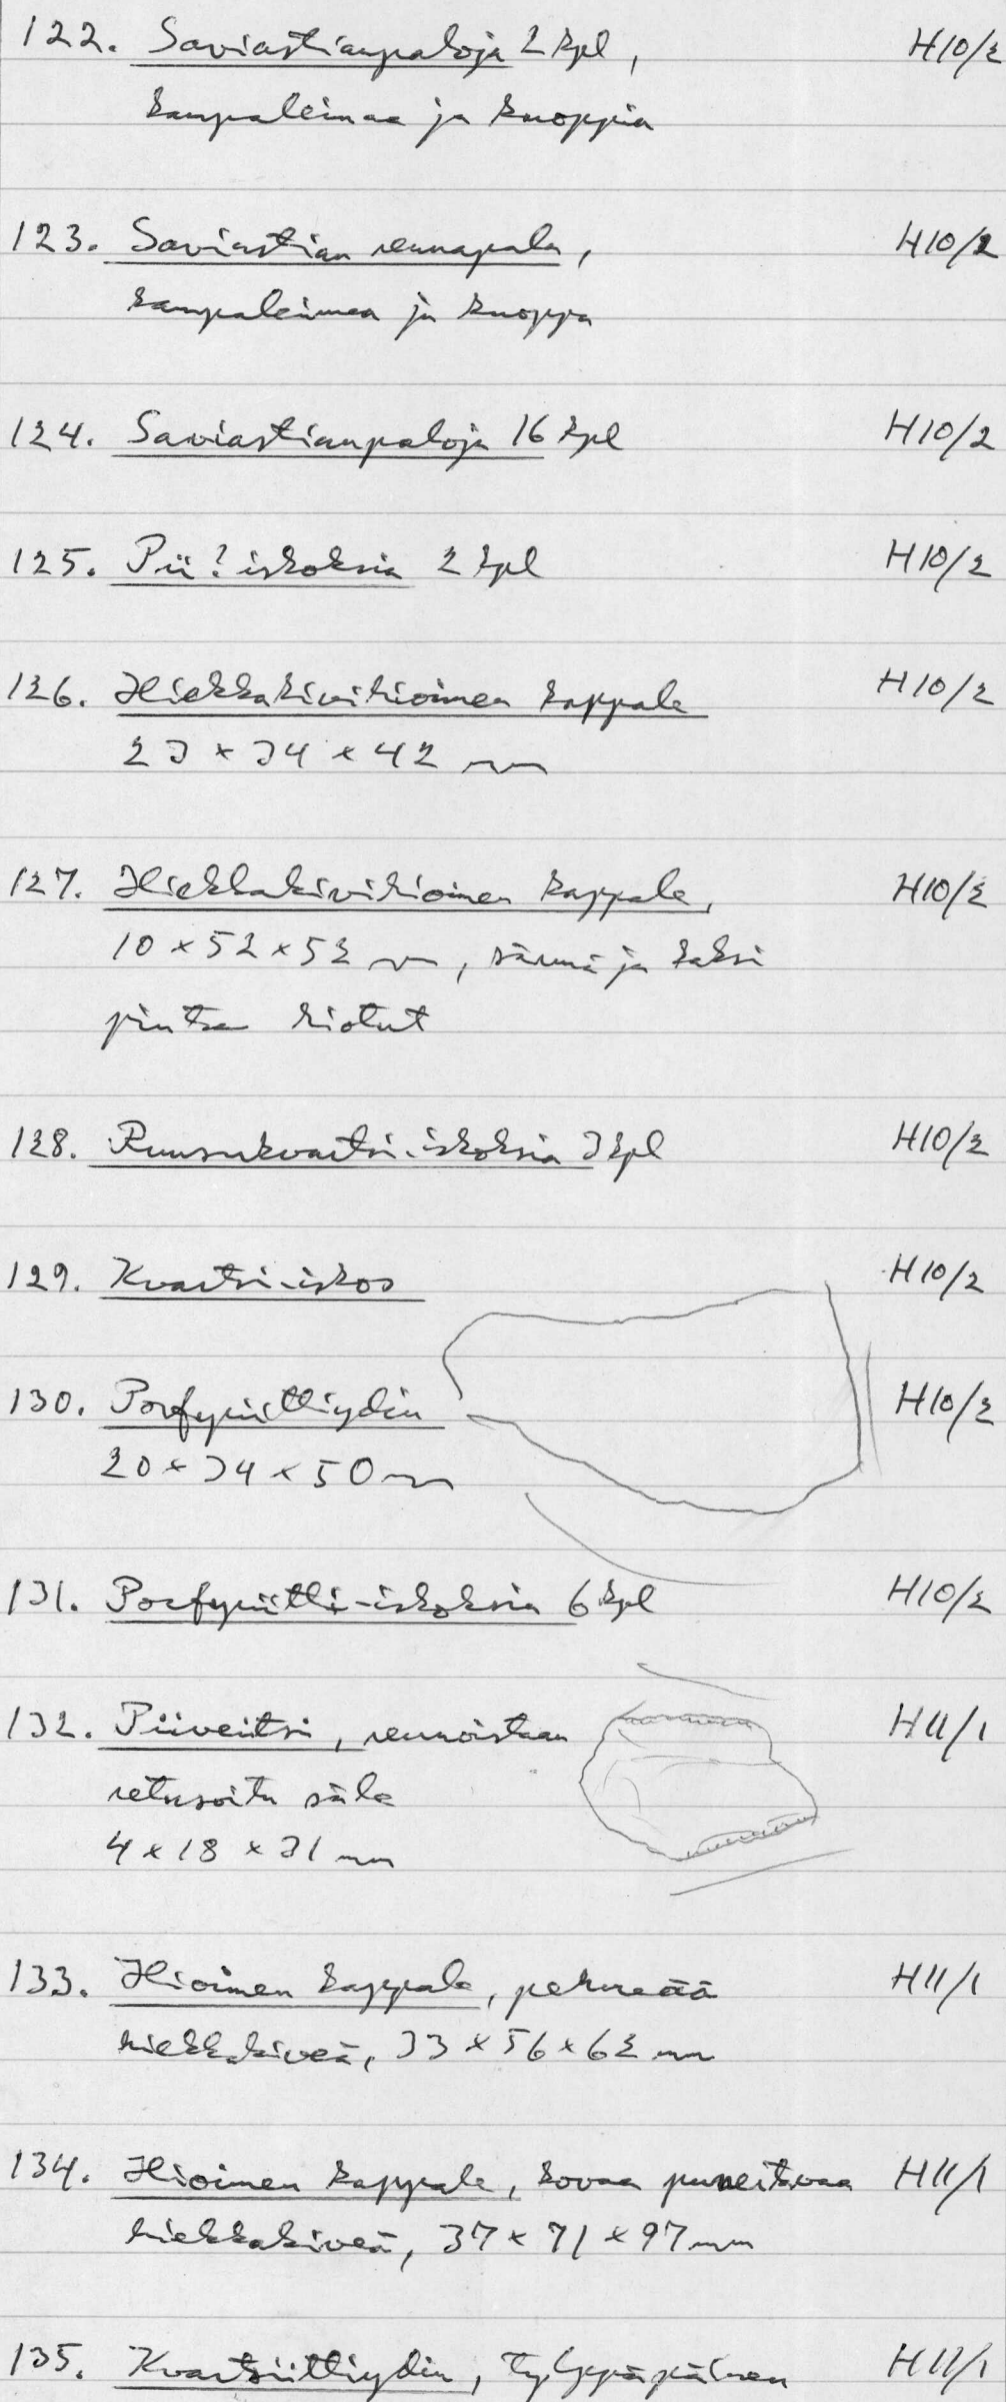 122. Saviastianpaloja 2 kpl, H10/2
kampaleimaa ja kuoppia
123. Saviastian reunapala, H10/2
kampaleimaa ja kuoppa
124. Saviastianpaloja 16 kpl H10/2
125. Pii? iskoksia 2 kpl H10/2
126. Hiekkakivihioimen kappale H10/2
23 x 34 x 42 mm
127. Hiekkakivihioimen kappale, H10/2
10 x 52 x 52 mm, särmä ja kaksi
pintaa hiotut
128. Ruusukvartsi-iskoksia 3 kpl H10/2
129. Kvartsi-iskos H10/2
130. Porfyriittiydin H10/2
20 x 34 x 50 mm
131. Porfyriitti-iskoksia 6 kpl H10/2
132. Piiveitsi, reunoistaan H11/1
retusoitu säle
4 x 18 x 31 mm
133. Hioimen kappale, pehmeää H11/1
hiekkakiveä, 33 x 56 x 62 mm
134. Hioimen kappale, kovaa punertavaa H11/1
hiekkakiveä, 37 x 71 x 97 mm
135. Kvartsiittiydin, tylppäpäinen H11/1